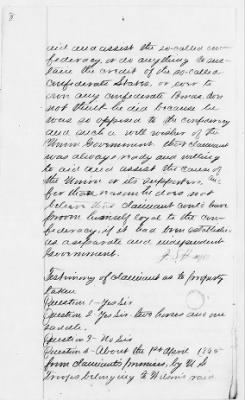 8
aid and assist the so-called con-
federacy, or do anything to sus-
tain the credit of the so-called
Confederate States, or ever to
own any Confederate Bonds, does
not think he did because he
was so opposed to the confederacy
and such a well wisher of the
Union Government that claimant
was always ready and willing
to aid and assist the cause of
the Union or its supporters, and
for these reasons he does not
believe that claimant could have
proven himself loyal to the con-
federacy, if it had been established
as a separate and independent
Government.
Testimony of claimant as to property
taken
Question 1 - Yes Sir
Question 2 - Yes Sir two horses and one
saddle.
Question 3 - No Sir
Question 4 - About the 1st April 1865
from claimant's premises, by U S
Troops belonging to Wilson's raid